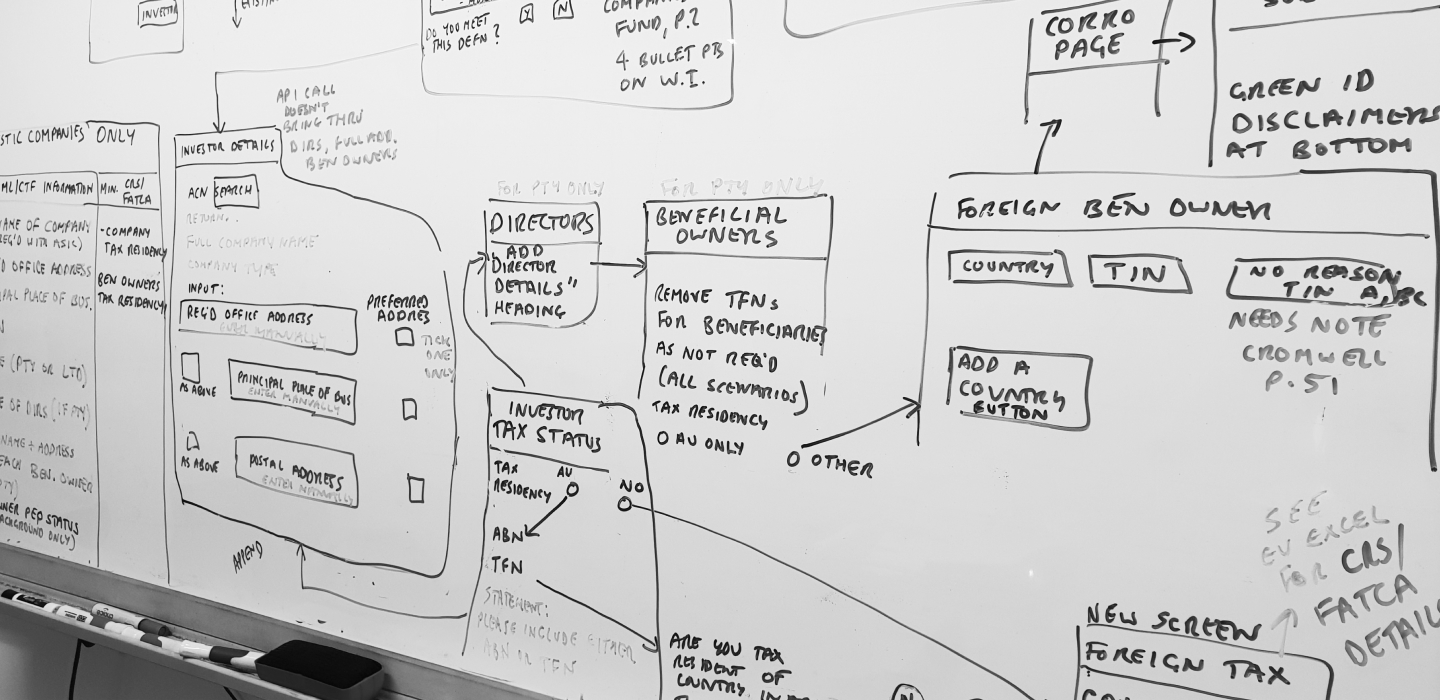 INVESTOR
DO YOU MEET
THIS DEFN?
Y
N
FUND, P.2
4 BULLET PTS
ON W.I.
CORRO
PAGE
GREEN ID
DISCLAIMERS
AT BOTTOM
STIC COMPANIES' ONLY
ML/CTF INFORMATION
NAME OF COMPANY
(REG'D WITH ASIC)
D OFFICE ADDRESS
PAL PLACE OF BUS.
E (PTY OR LTD)
E OF DIRS (IF PTY)
NAME + ADDRESS
EACH BEN. OWNER
PTY)
NER PEP STATUS
BACKGROUND ONLY)
MIN. CRS/
FATCA
-COMPANY
TAX RESIDENCY
BEN OWNERS'
TAX RESIDENCY
API CALL
DOESN'T
BRING THRU
DIRS, FULL ADD.
BEN OWNERS
INVESTOR DETAILS
ACN SEARCH
RETURN..
FULL COMPANY NAME
COMPANY TYPE
INPUT:
REG'D OFFICE ADDRESS
ENTER MANUALLY
PREFERRED
ADDRES
TICK
ONE
ONLY
AS ABOVE
PRINCIPAL PLACE OF BUS
ENTER MANUALLY
AS ABOVE
POSTAL ADDRESS
ENTER MANUALLY
APPEND
FOR PTY ONLY
DIRECTORS
"ADD
DIRECTOR
DETAILS"
HEADING
FOR PTY ONLY
BENEFICIAL
OWNERS
REMOVE TFNs
FOR BENEFICIARIES
AS NOT REQ'D
(ALL SCENARIOS)
TAX RESIDENCY
O AU ONLY
O OTHER
INVESTOR
TAX STATUS
TAX
RESIDENCY
AU
NO
ABN
TFN
STATEMENT:
PLEASE INCLUDE EITHER
ABN OR TFN
ARE YOU TAX
RESIDENT OF
COUNTRY
N
FOREIGN BEN OWNER
COUNTRY
TIN
NO REASON
TIN A,BC
NEEDS NOTE
CROMWELL
P.51
ADD A
COUNTRY
BUTTON
SEE
EV EXCEL
FOR CRS/
FATCA
DETAIL
NEW SCREEN
FOREIGN TAX